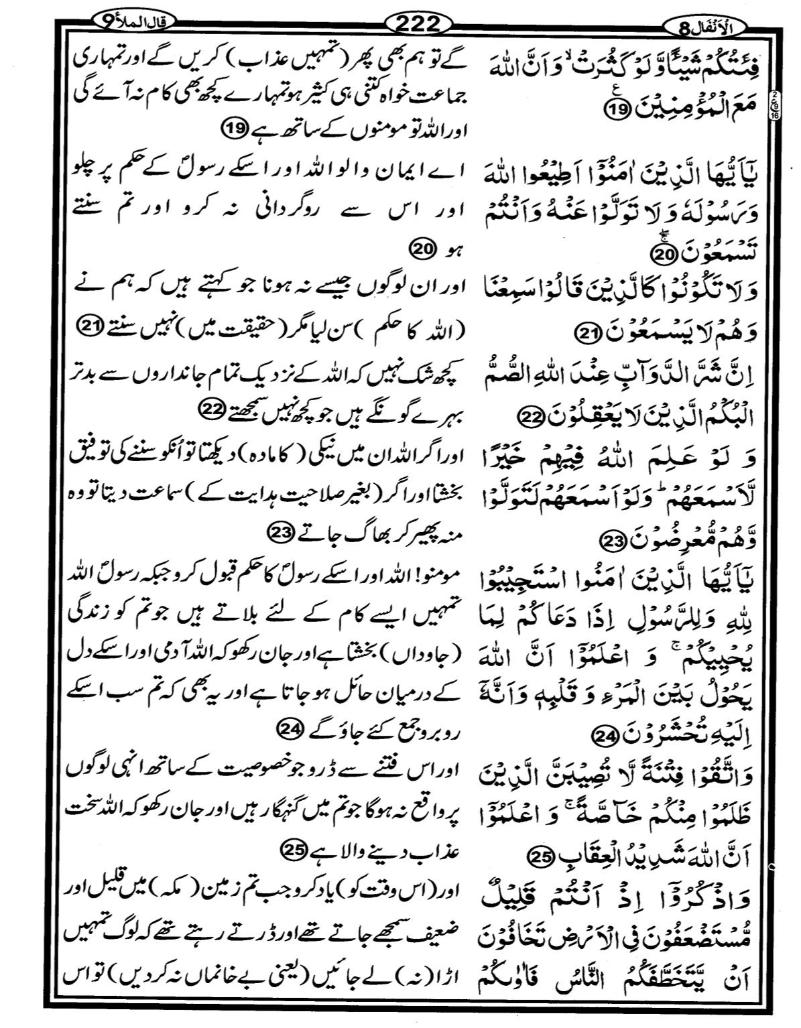 قال الملأ 9
222
الْاَنْفَال 8
فِئَتُكُمْ شَيْـًٔا وَّلَوْ كَثُرَتْ ۙ وَاَنَّ اللّٰهَ
مَعَ الْمُؤْمِنِيْنَ ۧ 19
يٰٓاَيُّهَا الَّذِيْنَ اٰمَنُوْٓا اَطِيْعُوا اللّٰهَ
وَرَسُوْلَهٗ وَلَا تَوَلَّوْا عَنْهُ وَاَنْتُمْ
تَسْمَعُوْنَ ۚ 20
وَلَا تَكُوْنُوْا كَالَّذِيْنَ قَالُوْا سَمِعْنَا
وَهُمْ لَا يَسْمَعُوْنَ 21
اِنَّ شَرَّ الدَّوَآبِّ عِنْدَ اللّٰهِ الصُّمُّ
الْبُكْمُ الَّذِيْنَ لَا يَعْقِلُوْنَ 22
وَ لَوْ عَلِمَ اللّٰهُ فِيْهِمْ خَيْرًا
لَّاَسْمَعَهُمْ ؕ وَلَوْ اَسْمَعَهُمْ لَتَوَلَّوْا
وَّهُمْ مُّعْرِضُوْنَ 23
يٰٓاَيُّهَا الَّذِيْنَ اٰمَنُوا اسْتَجِيْبُوْا
لِلّٰهِ وَلِلرَّسُوْلِ اِذَا دَعَاكُمْ لِمَا
يُحْيِيْكُمْ ۚ وَ اعْلَمُوْٓا اَنَّ اللّٰهَ
يَحُوْلُ بَيْنَ الْمَرْءِ وَ قَلْبِهٖ وَاَنَّهٗٓ
اِلَيْهِ تُحْشَرُوْنَ 24
وَاتَّقُوْا فِتْنَةً لَّا تُصِيْبَنَّ الَّذِيْنَ
ظَلَمُوْا مِنْكُمْ خَآصَّةً ۚ وَ اعْلَمُوْٓا
اَنَّ اللّٰهَ شَدِيْدُ الْعِقَابِ 25
وَاذْكُرُوْٓا اِذْ اَنْتُمْ قَلِيْلٌ
مُّسْتَضْعَفُوْنَ فِي الْاَرْضِ تَخَافُوْنَ
اَنْ يَّتَخَطَّفَكُمُ النَّاسُ فَاٰوٰىكُمْ
گے تو ہم بھی پھر (تمہیں عذاب) کریں گے اور تمہاری
جماعت خواہ کتنی ہی کثیر ہو تمہارے کچھ بھی کام نہ آئے گی
اور اللہ تو مومنوں کے ساتھ ہے 19
اے ایمان والو اللہ اور اسکے رسولؐ کے حکم پر چلو
اور اس سے روگردانی نہ کرو اور تم سنتے
ہو 20
اور ان لوگوں جیسے نہ ہونا جو کہتے ہیں کہ ہم نے
(اللہ کا حکم) سن لیا مگر (حقیقت میں) نہیں سنتے 21
کچھ شک نہیں کہ اللہ کے نزدیک تمام جانداروں سے بدتر
بہرے گونگے ہیں جو کچھ نہیں سمجھتے 22
اور اگر اللہ ان میں نیکی (کا مادہ) دیکھتا تو اُنکو سننے کی توفیق
بخشتا اور اگر (بغیر صلاحیت ہدایت کے) سماعت دیتا تو وہ
منہ پھیر کر بھاگ جاتے 23
مومنو! اللہ اور اسکے رسولؐ کا حکم قبول کرو جبکہ رسولؐ اللہ
تمہیں ایسے کام کے لئے بلاتے ہیں جو تم کو زندگی
(جاوداں) بخشتا ہے اور جان رکھو کہ اللہ آدمی اور اسکے دل
کے درمیان حائل ہو جاتا ہے اور یہ بھی کہ تم سب اسکے
روبرو جمع کئے جاؤ گے 24
اور اس فتنے سے ڈرو جو خصوصیت کے ساتھ انہی لوگوں
پر واقع نہ ہو گا جو تم میں گنہگار ہیں اور جان رکھو کہ اللہ سخت
عذاب دینے والا ہے 25
اور (اس وقت کو) یاد کرو جب تم زمین (مکہ) میں قلیل اور
ضعیف سمجھے جاتے تھے اور ڈرتے رہتے تھے کہ لوگ تمہیں
اڑا (نہ) لے جائیں (یعنی بے خانماں نہ کر دیں) تو اس